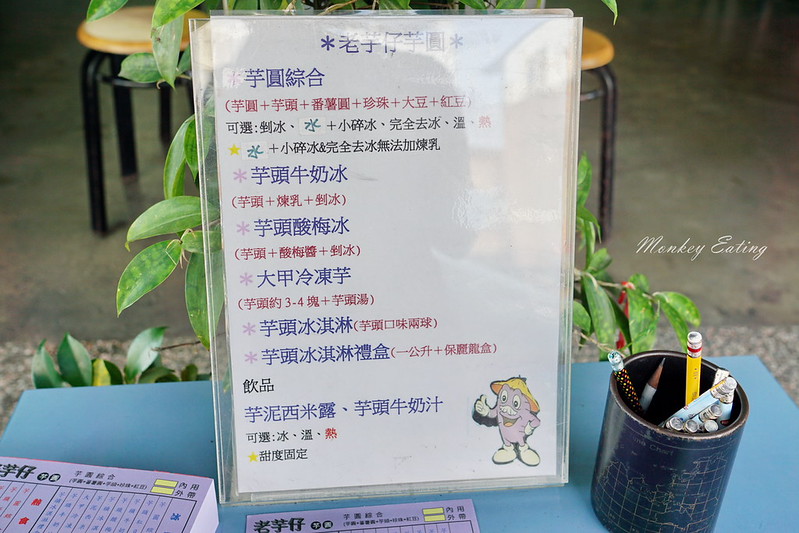 *老芋仔芋圓*
*芋圓綜合
(芋圓+芋頭+番薯圓+珍珠+大豆+紅豆)
可選:剉冰、水+小碎冰、完全去冰、溫、熱
★水+小碎冰&完全去冰無法加煉乳
*芋頭牛奶冰
(芋頭+煉乳+剉冰)
*芋頭酸梅冰
(芋頭+酸梅醬+剉冰)
*大甲冷凍芋
(芋頭約3-4塊+芋頭湯)
*芋頭冰淇淋(芋頭口味兩球)
*芋頭冰淇淋禮盒(一公升+保麗龍盒)
飲品
芋泥西米露、芋頭牛奶汁
可選:冰、溫、熱
★甜度固定
Monkey Eating
老芋仔 芋圓 芋圓綜合 內用
(芋圓+番薯圓+芋頭+珍珠+紅豆) 外帶
冰
熱
食
老芋仔 芋圓 芋圓綜合 內用
外帶